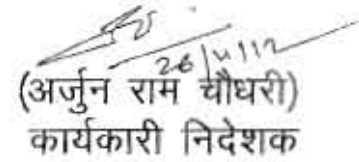 26/4/12
(अर्जुन राम चौधरी)
कार्यकारी निदेशक